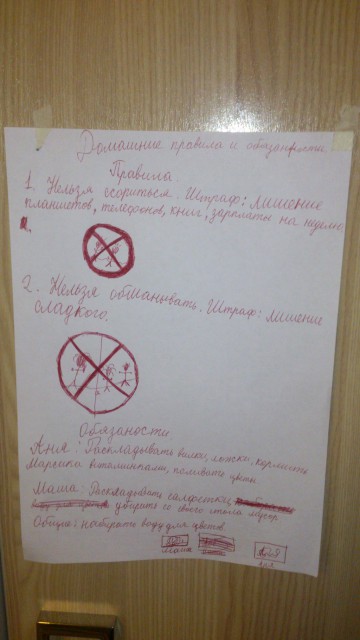 Домашние правила и обязанности.
Правила.
1. Нельзя ссориться. Штраф: лишение
планшетов, телефонов, книг, зарплаты на неделю
2. Нельзя обманывать. Штраф: лишение
сладкого.
Обязаности.
Аня: Раскладывать вилки, ложки, кормить
витаминками, поливать цветы
Маша: Раскладовать салфетки,
убирать со своего стола мусор
Общие: набирать воду для цветов
Маша